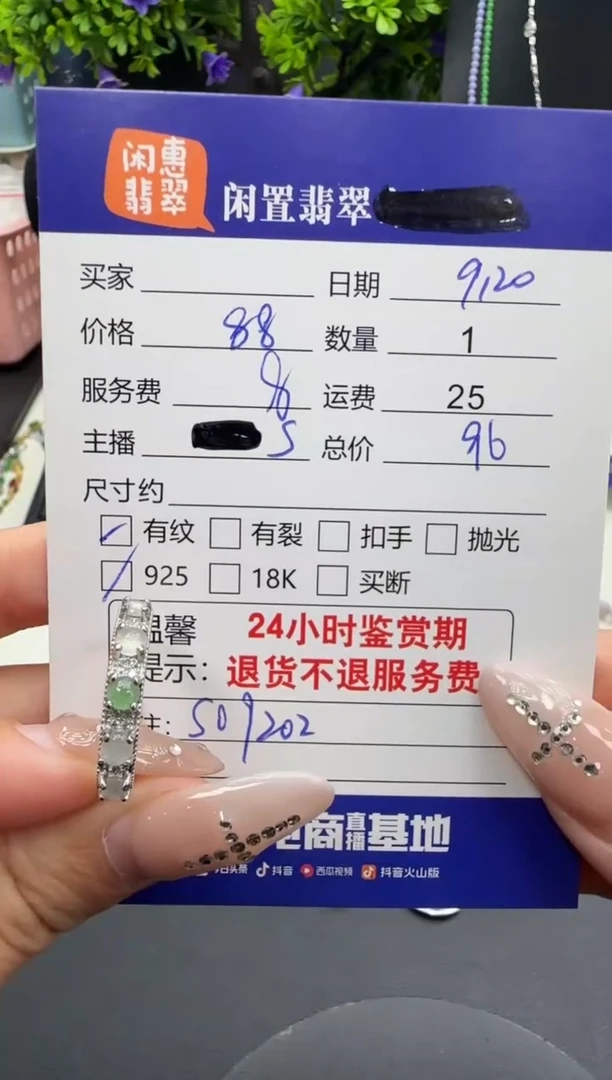 闲惠
翡翠
闲置翡翠
买家 日期 9,20
价格 88 数量 1
服务费 8 运费 25
主播 S 总价 96
尺寸约
有纹 有裂 扣手 抛光
925 18K 买断
温馨 24小时鉴赏期
提示: 退货不退服务费
注: 509202
电商直播基地
今日头条 抖音 西瓜视频 抖音火山版